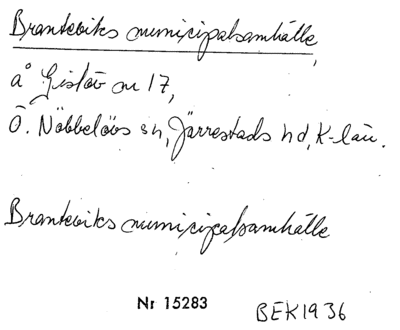 Branteviks municipalsamhälle,
å Gislöv nr 17,
Ö. Nöbbelövs sn, Järrestads hd, K-län.
Branteviks municipalsamhälle
Nr 15283 BEK1936